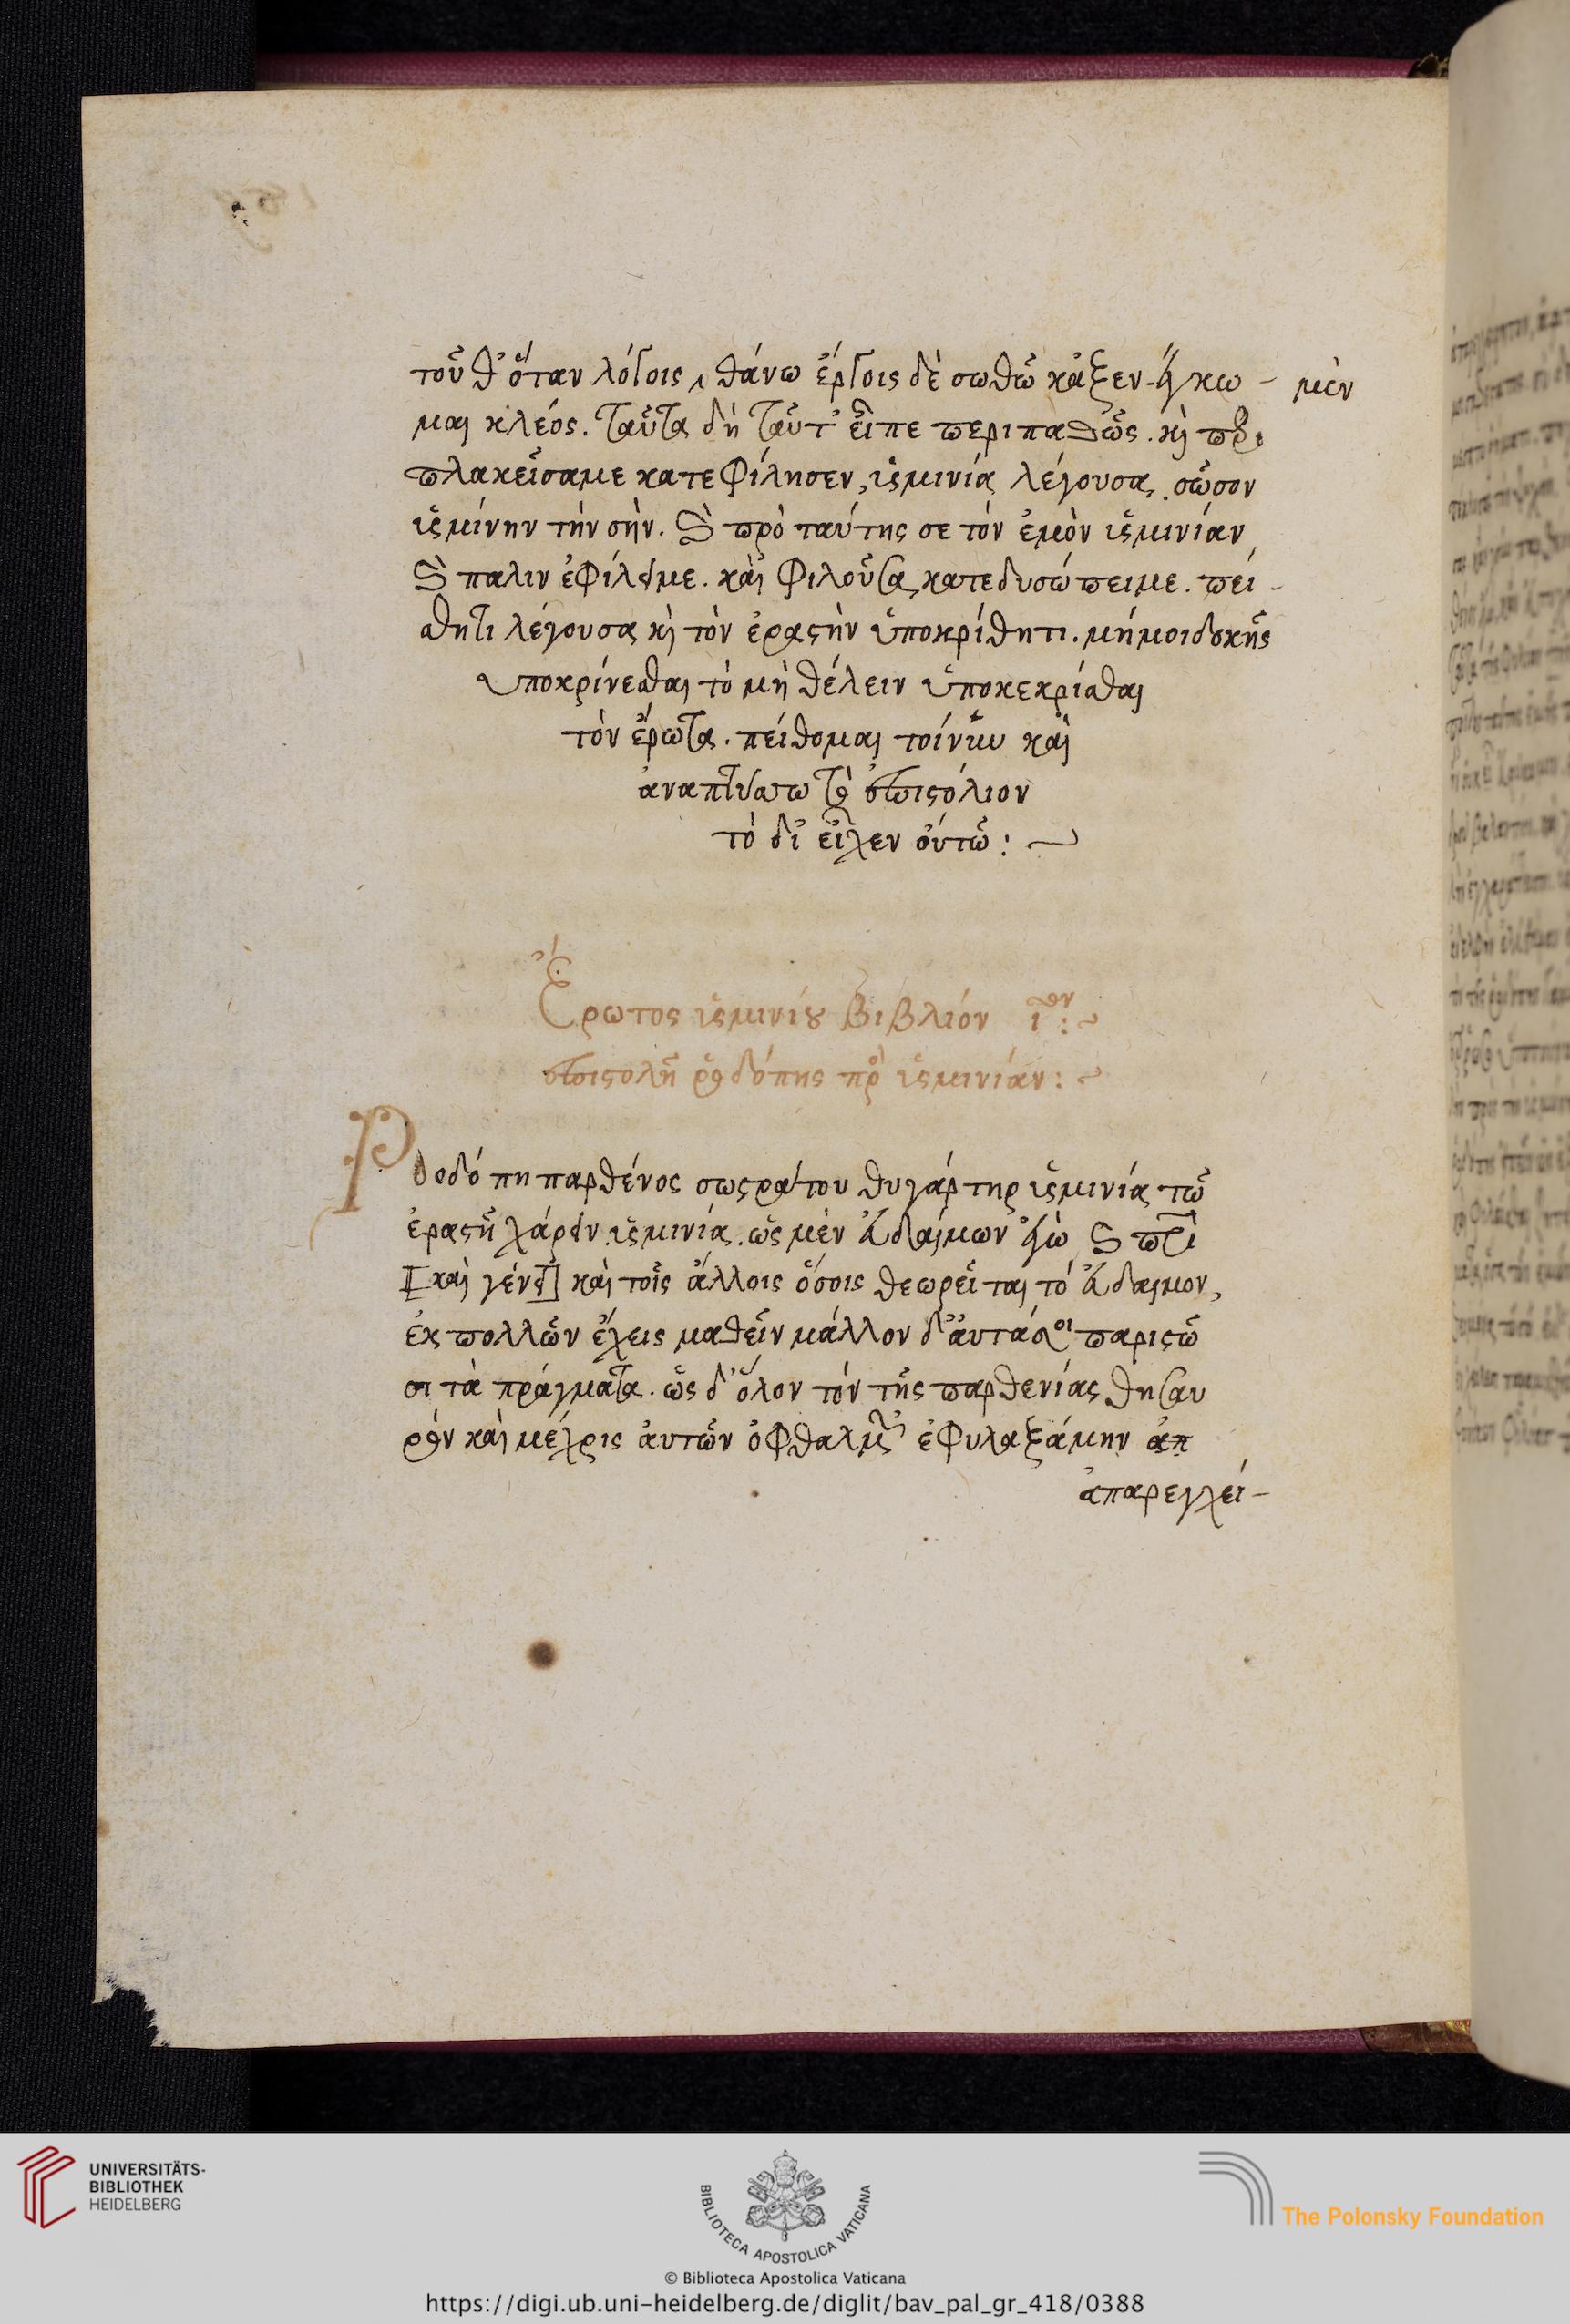 τοῦθ' ὅταν λόγοις θάνω ἔργοις δὲ σωθῶ κἀξενέγκω- μὲν
μαι κλέος. ταῦτα δὴ ταῦτ' εἶπε περιπαθῶς. καὶ περι
πλακεῖσα με κατεφίλησεν, ἰσμινία λέγουσα, σῶσον
ἰσμίνην τὴν σὴν. καὶ πρὸ ταύτης σε τὸν ἐμὸν ἰσμινίαν
καὶ παλιν ἐφίλει με. καὶ φιλοῦσα κατεδυσώπει με. πεί-
σθητι λέγουσα καὶ τὸν ἐραστὴν ὑποκρίθητι. μή μοι δοκῆς
υποκρίνεσθαι τὸ μὴ θέλειν ὑποκεκρίσθαι
τὸν ἔρωτα. πείθομαι τοίνυν καὶ
ἀναπτύσσω τὸ ἐπιστόλιον
τὸ δὲ εἶχεν οὑτῶ:
Ἔρωτος ἰσμινίου βιβλιόν ιον:
ἐπιστολὴ ῥοδόπης πρὸς ἰσμινίαν:
Ροδόπη παρθένος σωστράτου θυγάρτηρ ἰσμινία τῶ
ἐραστῆ χάρειν. ἰσμινία. ὡς μὲν εὐδαίμων ἐγὼ καὶ
[καὶ γένει] καὶ τοῖς ἄλλοις ὅσοις θεωρεῖται τὸ εὔδαιμον,
ἐκ πολλῶν ἔχεις μαθεῖν μάλλον δ' ἀυτά σοι παριστῶ
σι τὰ πράγματα. ὡς δ' ὅλον τὸν τῆς παρθενίας θησαυ
ρὸν καὶ μέχρις ἀυτῶν ὀφθαλμῶν ἐφυλαξάμην ἀπ
ἀπαρεγχεί-
UNIVERSITÄTS-
BIBLIOTHEK
HEIDELBERG
BIBLIOTECA APOSTOLICA VATICANA
The Polonsky Foundation
© Biblioteca Apostolica Vaticana
https://digi.ub.uni-heidelberg.de/diglit/bav_pal_gr_418/0388